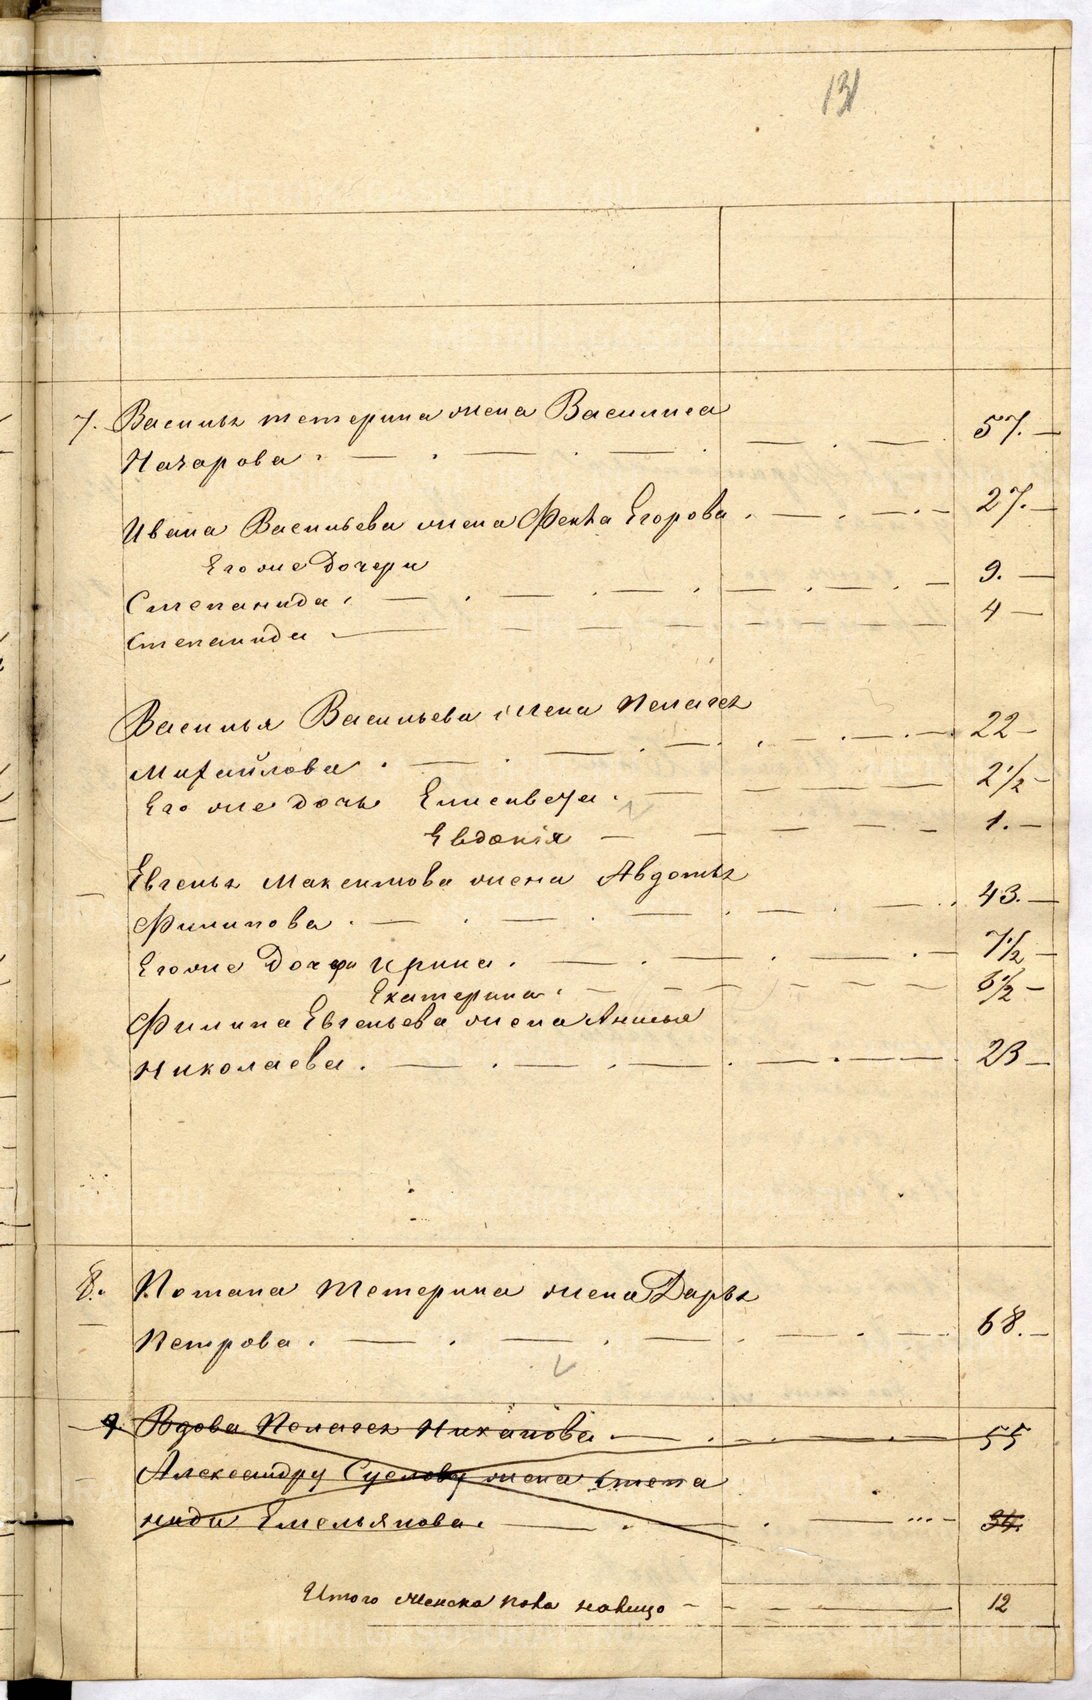 131
7. Васильѣ тетерина жена Василиса 57.
Назарова
Ивана Васильева жена Фекла Егорова 27.
Его же Дочери
Степанида 9.
Степанида 4
Василья Васильева жена Пелагеѣ 22
Михайлова
Его же дочь Елисавета 2 1/2
Евдокія 1.
Евгеньѣ Максимова жена Авдотьѣ
Филипова 43.
Его же Дочери Ирина 7 1/2
Екатерина 6 1/2
Филипа Евгеньева жена Анисья
Николаева 23
8. Потапа Тетерина жена Дарьѣ
Петрова 68.
9. Вдова Пелагеѣ Никапова 55
Александру Суслову жена Степа
нида Емельянова 34.
Итого женска пола налицо 12